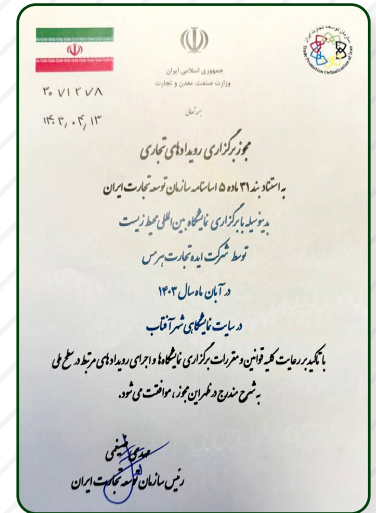 جمهوری اسلامی ایران
وزارت صنعت، معدن و تجارت
سازمان توسعه تجارت ایران
Trade Promotion Organization of Iran
بسمه تعالی
۳۰۷۱۲۷۸
۱۴۰۳٫۰۴٫۱۳
مجوز برگزاری رویدادهای تجاری
به استناد بند ۳۱ ماده ۵ اساسنامه سازمان توسعه تجارت ایران
بدینوسیله با برگزاری نمایشگاه بین المللی محیط زیست
توسط شرکت ایده تجارت هرمس
در آبان ماه سال ۱۴۰۳
در سایت نمایشگاهی شهر آفتاب
با تاکید بر رعایت کلیه قوانین و مقررات برگزاری نمایشگاه‌ها و اجرای رویدادهای مرتبط در سطح ملی
به شرح مندرج در ظهر این مجوز، موافقت می شود.
مهدی ضیغمی
رئیس سازمان توسعه تجارت ایران